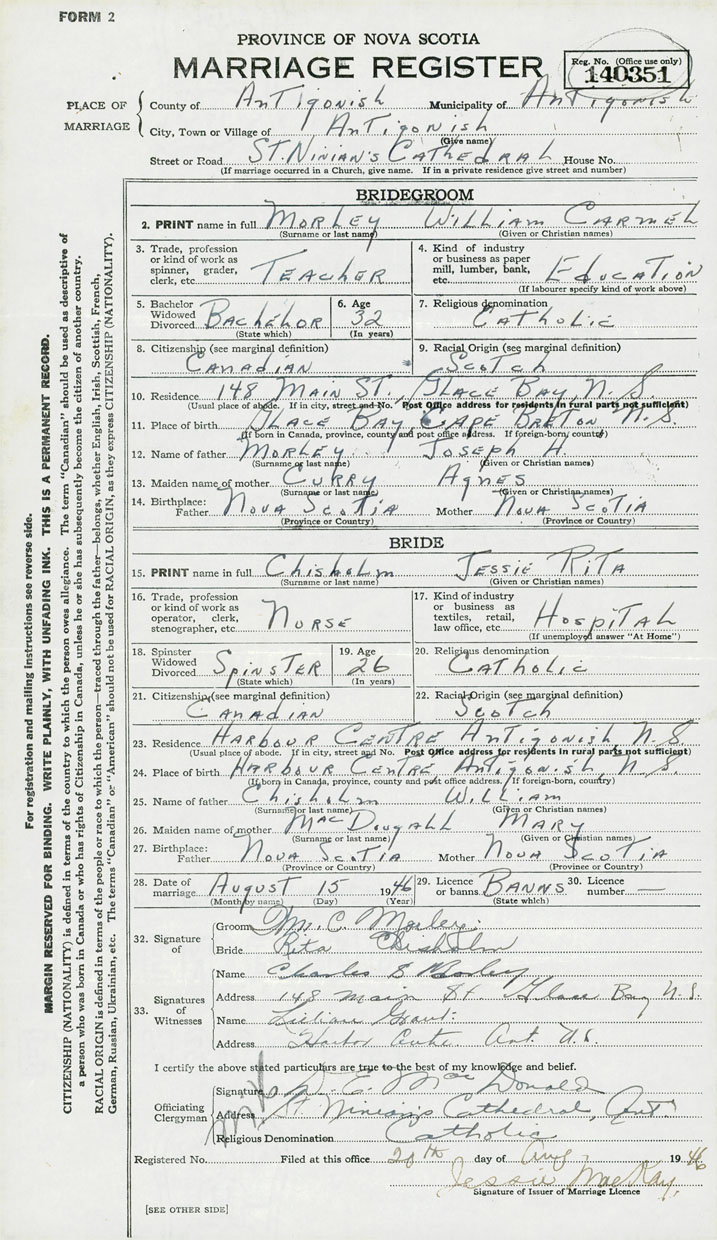 FORM 2
PROVINCE OF NOVA SCOTIA
MARRIAGE REGISTER
Reg. No. (Office use only)
140351
PLACE OF MARRIAGE
County of Antigonish Municipality of Antigonish
City, Town or Village of Antigonish
(Give name)
Street or Road St. Ninian's Cathedral House No.
(If marriage occurred in a Church, give name. If in a private residence give street and number)
BRIDEGROOM
2. PRINT name in full Morley William Carmel
(Surname or last name) (Given or Christian names)
3. Trade, profession or kind of work as spinner, grader, clerk, etc. Teacher
4. Kind of industry or business as paper mill, lumber, bank, etc. Education
(If labourer specify kind of work above)
5. Bachelor Widowed Divorced Bachelor (State which)
6. Age 32 (In years)
7. Religious denomination Catholic
8. Citizenship (see marginal definition) Canadian
9. Racial Origin (see marginal definition) Scotch
10. Residence 148 Main St, Glace Bay, N.S.
(Usual place of abode. If in city, street and No. Post Office address for residents in rural parts not sufficient)
11. Place of birth Glace Bay, Cape Breton N.S.
(If born in Canada, province, county and post office address. If foreign-born, county)
12. Name of father Morley Joseph H.
(Surname or last name) (Given or Christian names)
13. Maiden name of mother Curry Agnes
(Surname or last name) (Given or Christian names)
14. Birthplace: Father Nova Scotia Mother Nova Scotia
(Province or Country) (Province or Country)
BRIDE
15. PRINT name in full Chisholm Jessie Rita
(Surname or last name) (Given or Christian names)
16. Trade, profession or kind of work as operator, clerk, stenographer, etc. Nurse
17. Kind of industry or business as textiles, retail, law office, etc. Hospital
(If unemployed answer "At Home")
18. Spinster Widowed Divorced Spinster (State which)
19. Age 26 (In years)
20. Religious denomination Catholic
21. Citizenship (see marginal definition) Canadian
22. Racial Origin (see marginal definition) Scotch
23. Residence Harbour Centre Antigonish N.S.
(Usual place of abode. If in city, street and No. Post Office address for residents in rural parts not sufficient)
24. Place of birth Harbour Centre Antigonish, N.S.
(If born in Canada, province, county and post office address. If foreign-born, country)
25. Name of father Chisholm William
(Surname or last name) (Given or Christian names)
26. Maiden name of mother MacDougall Mary
(Surname or last name) (Given or Christian names)
27. Birthplace: Father Nova Scotia Mother Nova Scotia
(Province or Country) (Province or Country)
28. Date of marriage August 15 1946
(Month by name) (Day) (Year)
29. Licence or banns Banns (State which)
30. Licence number —
32. Signature of
Groom C. Morley
Bride Rita Chisholm
33. Signatures of Witnesses
Name Charles Morley
Address 148 Main St Glace Bay N.S.
Name Lillian Grant
Address Harbor Centre Ant. N.S.
I certify the above stated particulars are true to the best of my knowledge and belief.
Officiating Clergyman
Signature MacDonald
Address St Ninian's Cathedral, Ant.
Religious Denomination Catholic
Registered No. Filed at this office 20th day of Aug 1946
Jessie MacKay
Signature of Issuer of Marriage Licence
[SEE OTHER SIDE]
For registration and mailing instructions see reverse side.
MARGIN RESERVED FOR BINDING. WRITE PLAINLY, WITH UNFADING INK. THIS IS A PERMANENT RECORD.
CITIZENSHIP (NATIONALITY) is defined in terms of the country to which the person owes allegiance. The term "Canadian" should be used as descriptive of
a person who was born in Canada or who has rights of Citizenship in Canada, unless he or she has subsequently become the citizen of another country.
RACIAL ORIGIN is defined in terms of the people or race to which the person—traced through the father—belongs, whether English, Irish, Scottish, French,
German, Russian, Ukrainian, etc. The terms "Canadian" or "American" should not be used for RACIAL ORIGIN, as they express CITIZENSHIP (NATIONALITY).